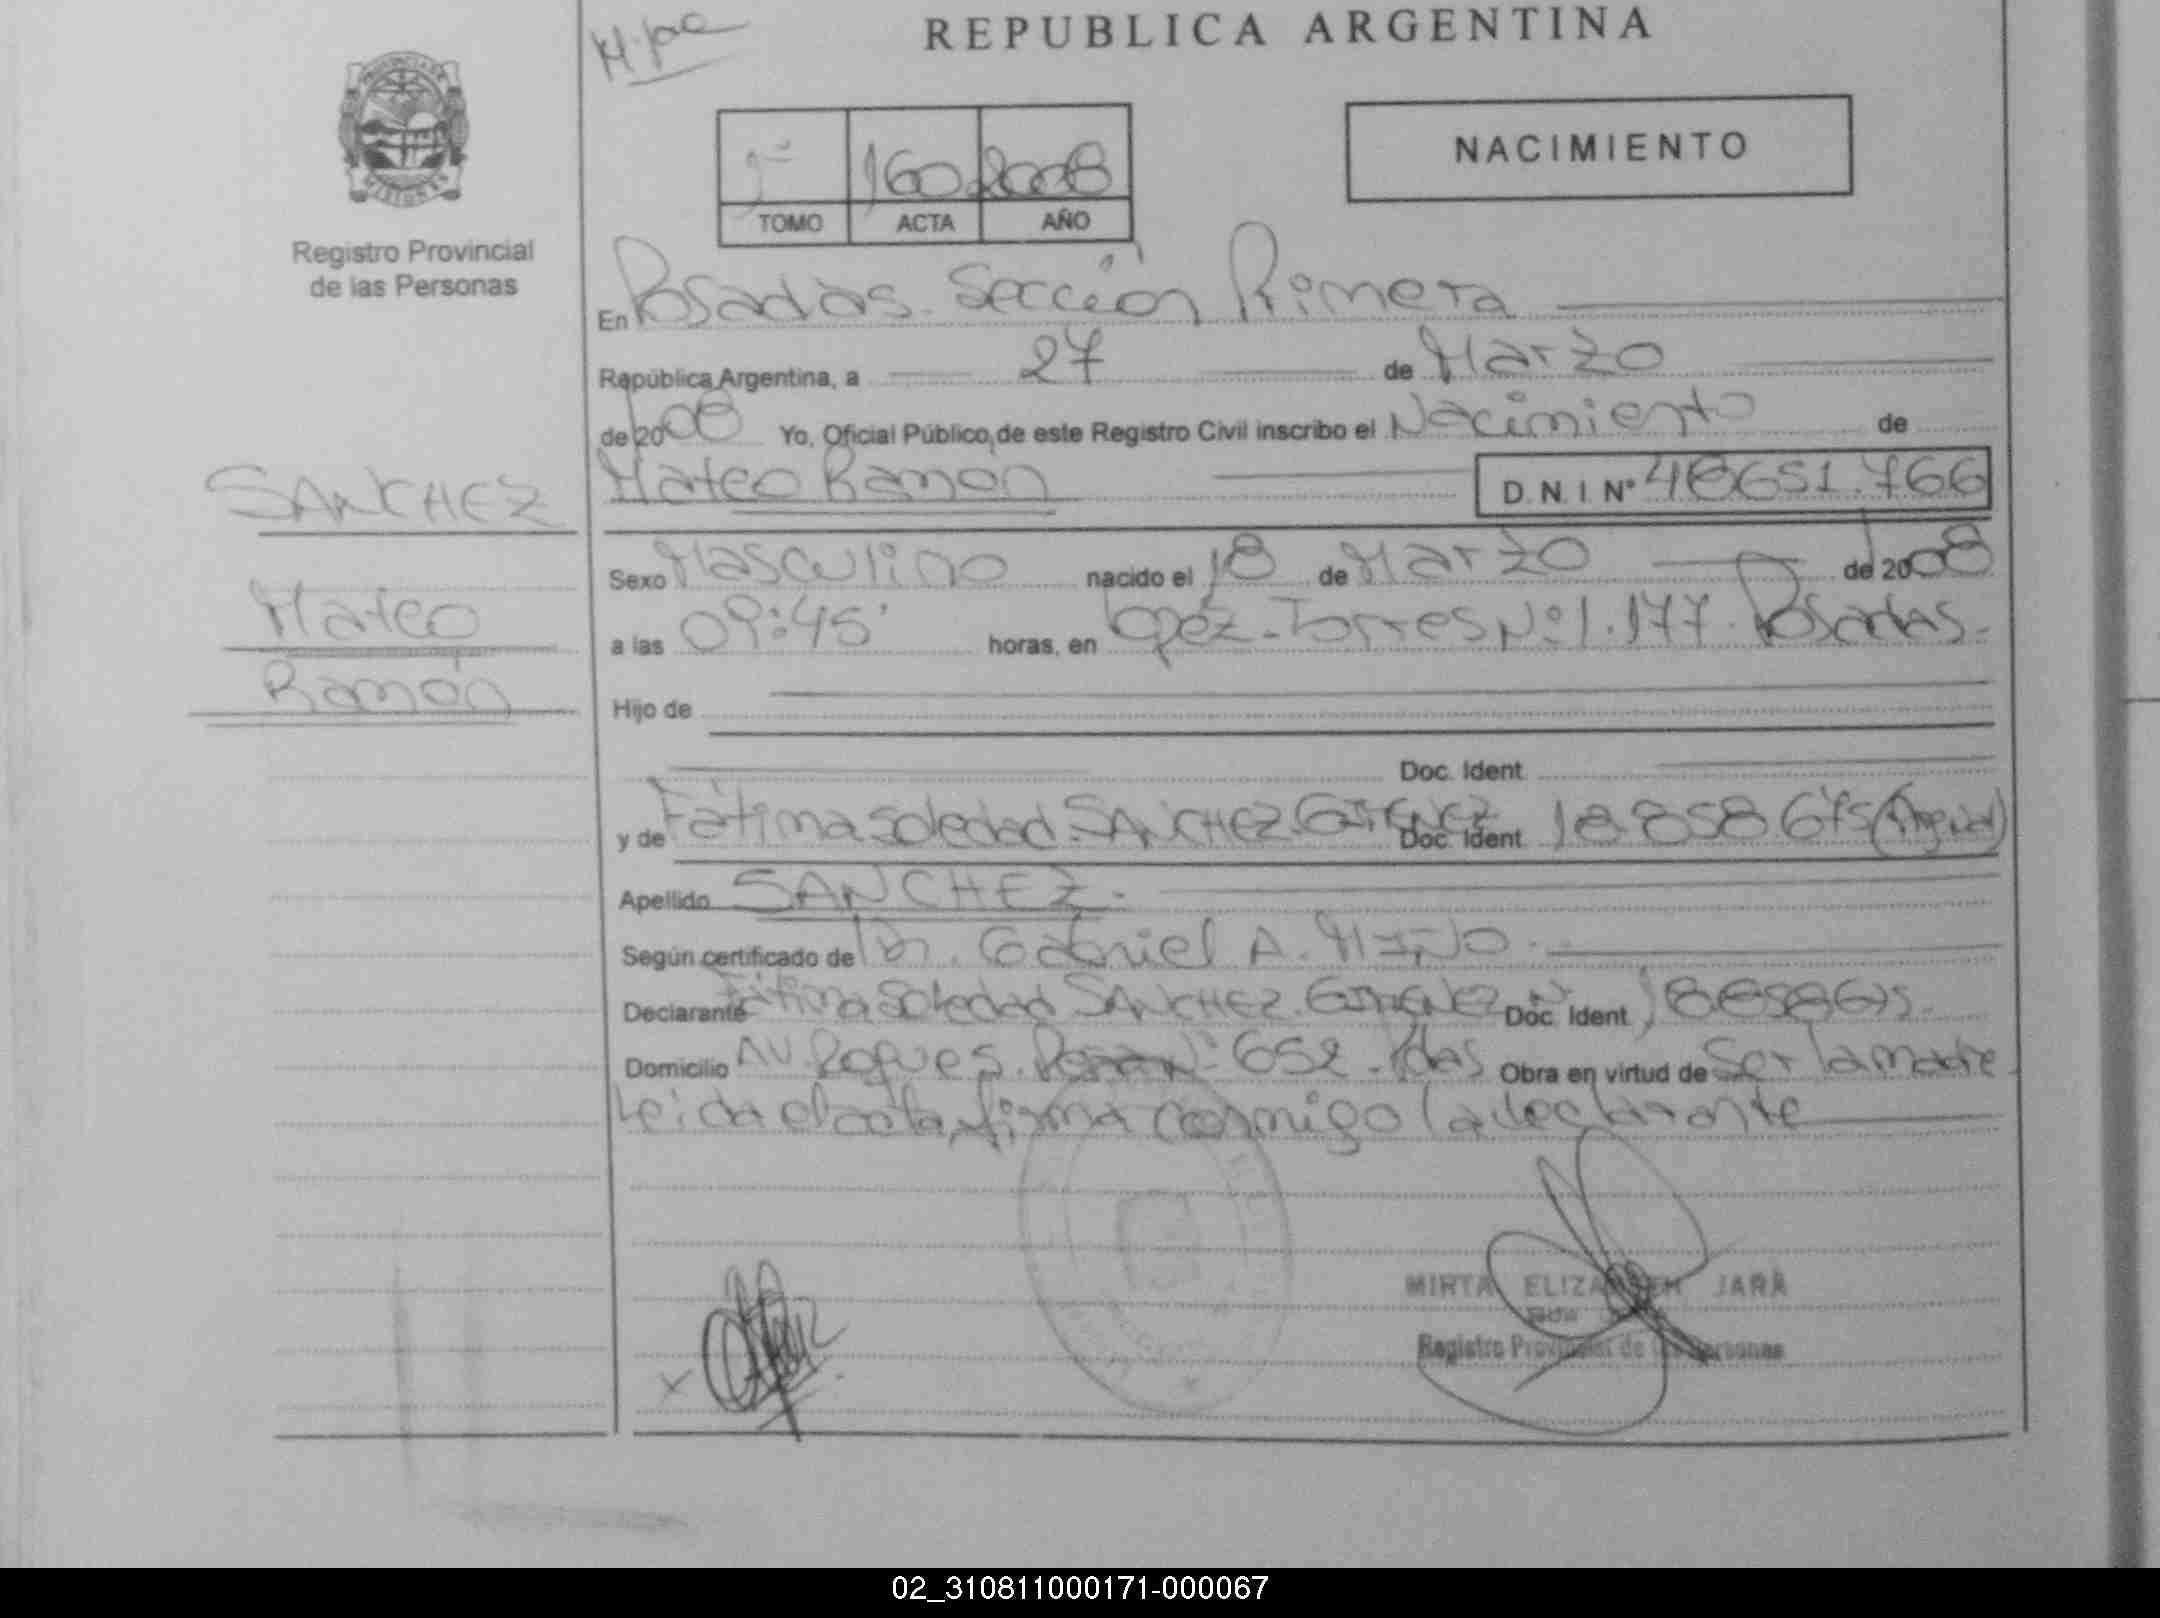 REPUBLICA ARGENTINA
PROVINCIA DE MISIONES
Registro Provincial
de las Personas
NACIMIENTO
1º 160 2008
TOMO ACTA AÑO
En Posadas. Sección Primera
República Argentina, a 27 de Marzo
de 2008 Yo, Oficial Público, de este Registro Civil inscribo el Nacimiento de
SANCHEZ
Mateo Ramon D.N.I. Nº 48651.766
Sexo Masculino nacido el 18 de Marzo de 2008
Mateo
a las 09:45' horas, en Lopez-Torres Nº 1.177. Posadas.
Ramón
Hijo de
Doc. Ident.
y de Fátima Soledad SANCHEZ. GIMENEZ Doc. Ident. 18858675
Apellido SANCHEZ.
Según certificado de Dr. Gabriel A. MIÑO.
Declarante Fátima Soledad SANCHEZ. GIMENEZ Doc. Ident. 18858675.
Domicilio AV. Roque S. Nº 652. Pdas Obra en virtud de Ser la madre
Leida el acta, firma conmigo la declarante
MIRTA ELIZABETH JARA
Registro Provincial de las Personas
02_310811000171-000067